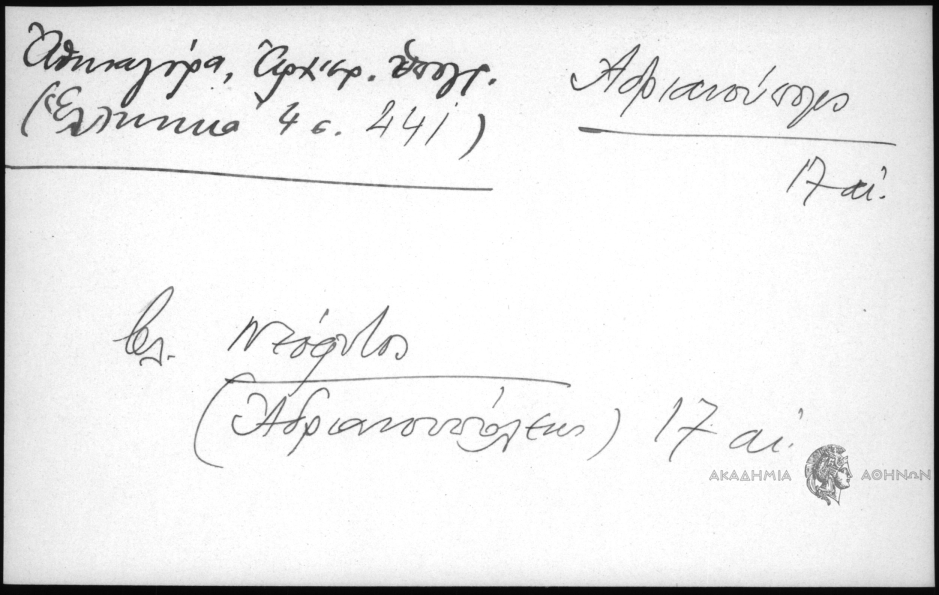 Ἀθηναγόρα, Ἀρχιερ. ὑπογρ.
(Ἑλληνικά 4 σ. 441)
Ἀδριανούπολις
17 αἰ.
βλ. Νεόφυτος
(Ἀδριανουπόλεως) 17 αἰ.
ΑΚΑΔΗΜΙΑ ΑΘΗΝΩΝ